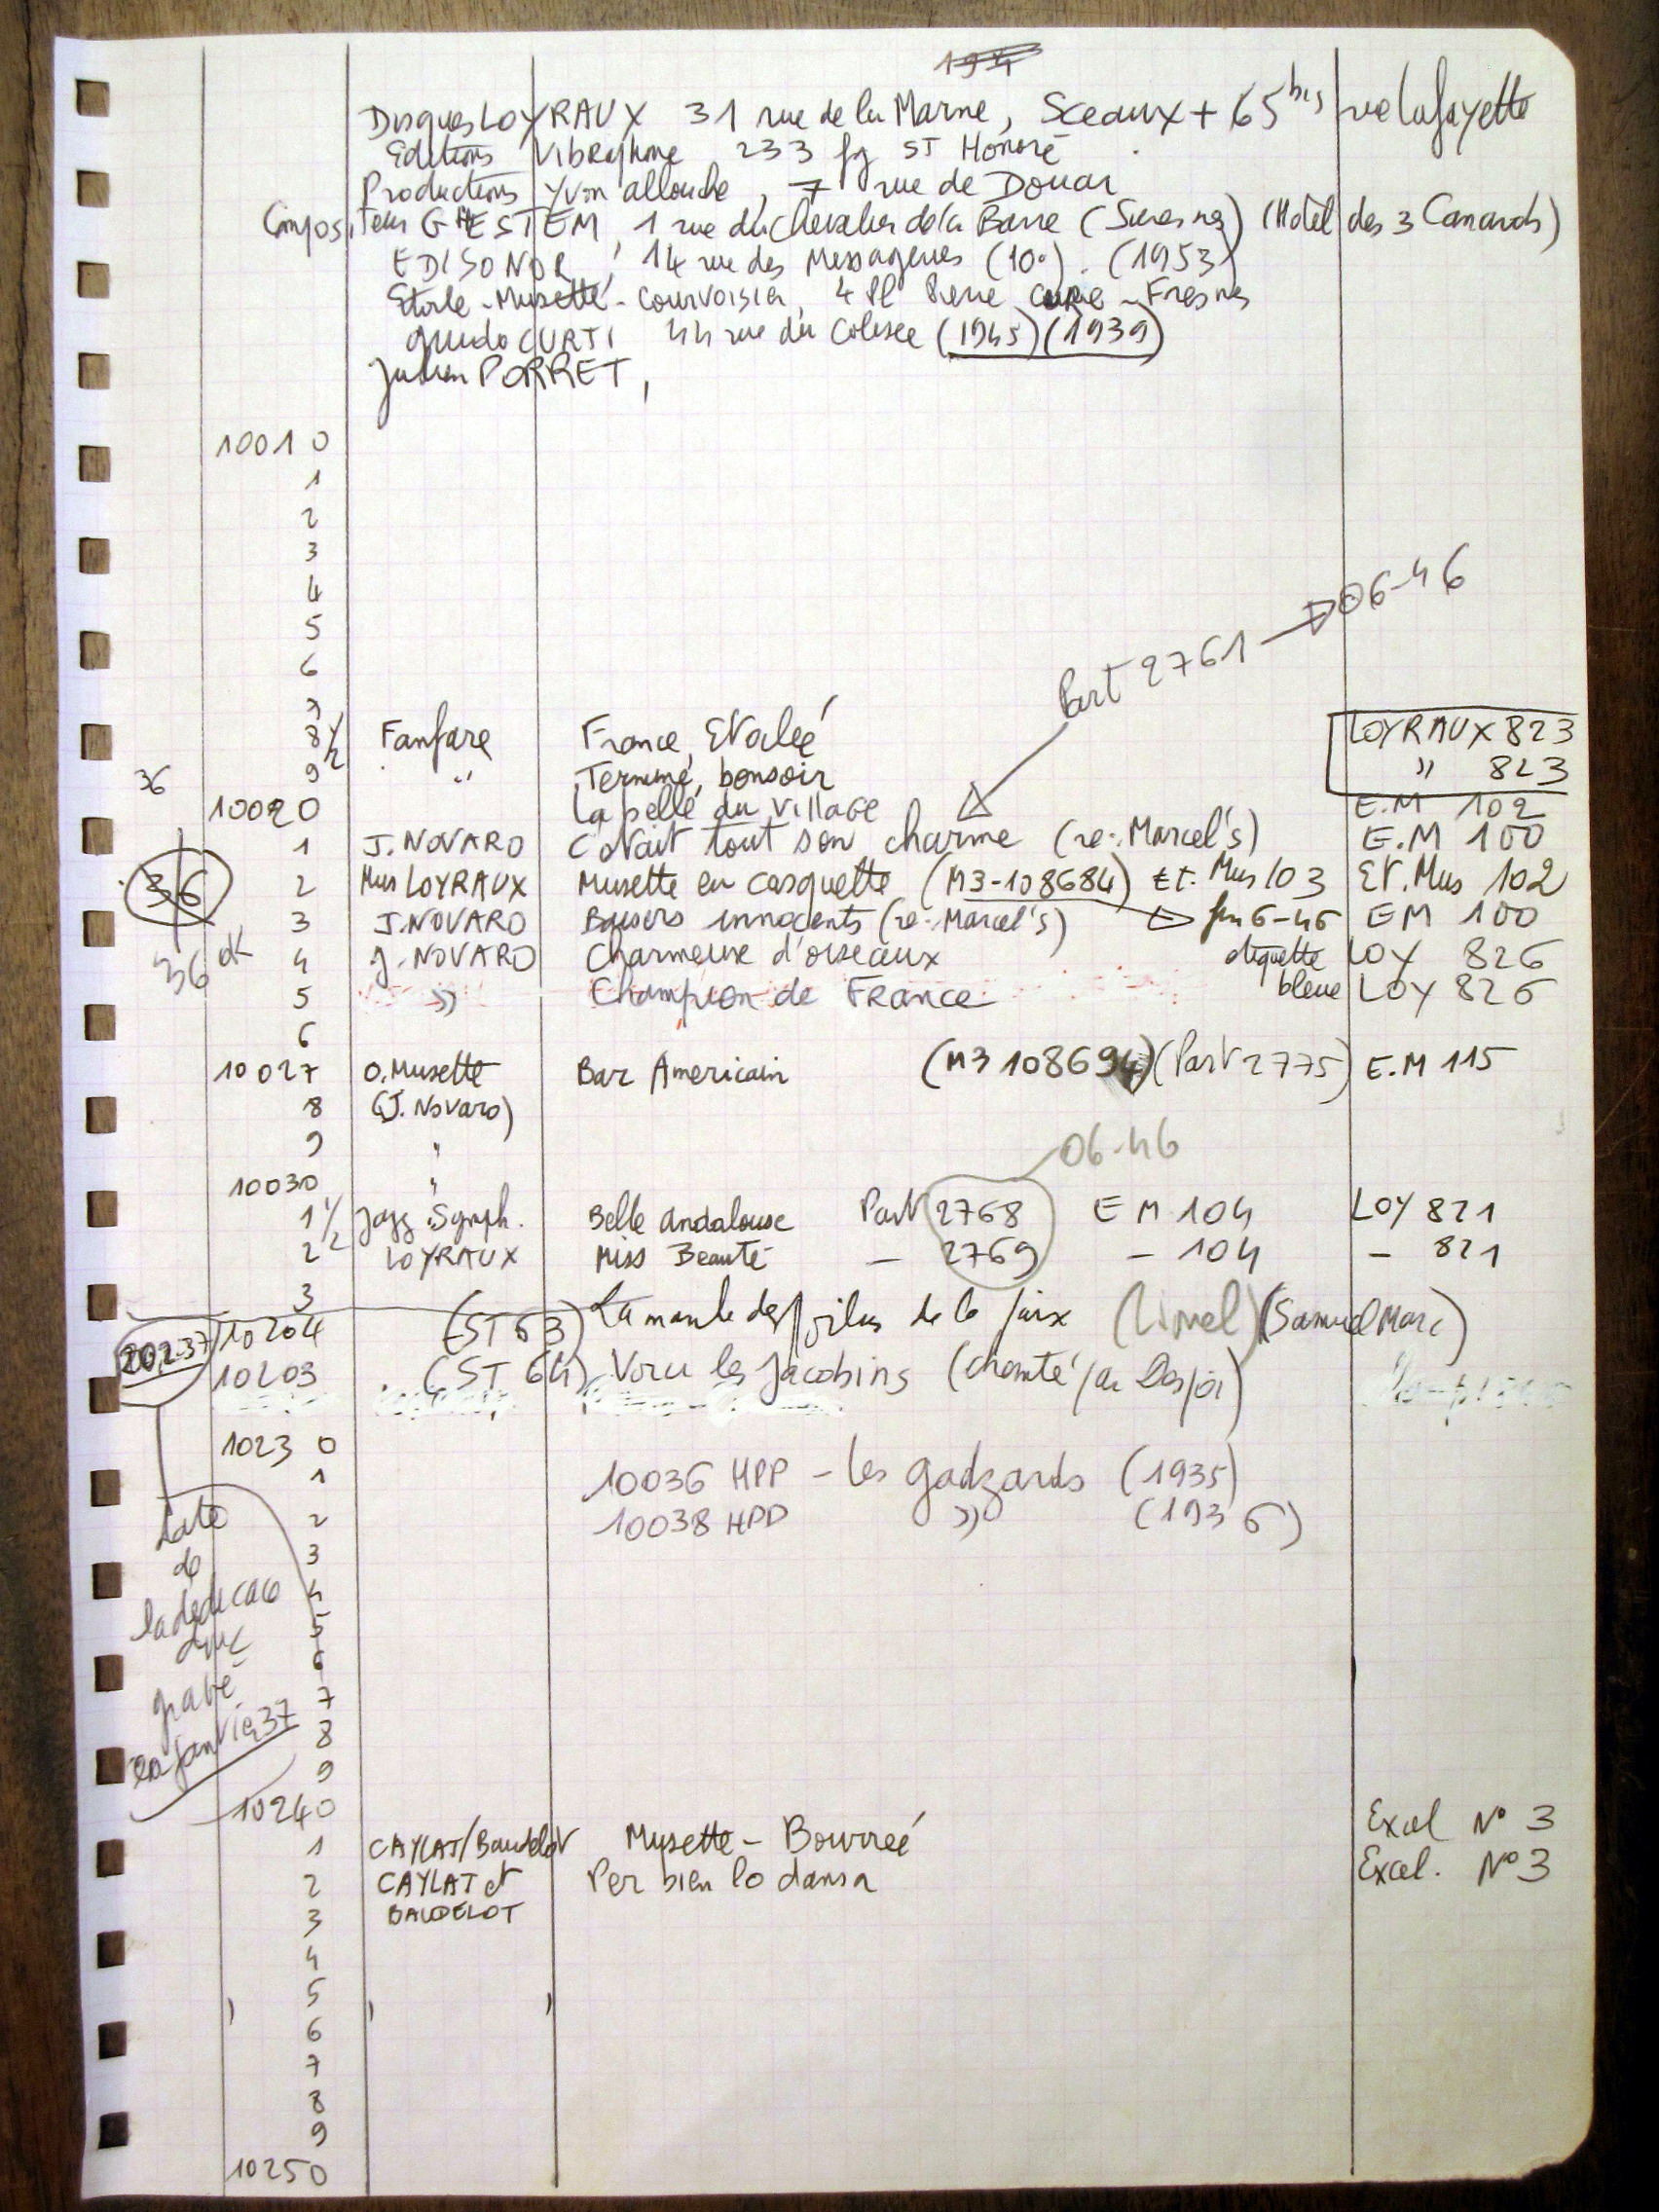 Disques LOYRAUX 31 rue de la Marne, Sceaux + 65 bis rue Lafayette
Editions Vibraphone 233 fg ST Honoré
Productions Yvon allouche, 7 rue de Douai
Compositeur GHESTEM, 1 rue du Chevalier de la Barre (Suresnes) (Hotel des 3 Canards)
EDISONOR, 14 rue des Messageries (10°). (1953)
Etoile-Musette-Courvoisier, 4 Pl Pierre Curie - Fresnes
guido CURTI 44 rue du Colisée (1945) (1939)
Julien PORRET,
10010
1
2
3
4
5
Part 2761 → 06-46
6
7
8 1/2 Fanfare France, LOYRAUX 823
36 9 " Terminé, bonsoir " 823
10020 La belle du village E.M 102
1 J. NOVARO C'était tout son charme (re: Marcel's) E.M 100
36 2 Mus LOYRAUX Musette en casquette (M3-108684) Et. Mus 103 Et. Mus 102
3 J. NOVARO Baisers innocents (re: Marcel's) fin 6-46 EM 100
36 ok 4 J. NOVARO Charmeuse d'oiseaux étiquette LOY 826
5 " Champion de France bleue LOY 826
6
10027 O. Musette Bar Americain (M3 108694) (Part 2775) E.M 115
8 (J. Novaro)
9 "
06-46
10030 "
1 1/2 Jazz Symph. Belle andalouse Part 2768 EM 104 LOY 821
2 LOYRAUX Miss Beauté - 2769 - 104 - 821
3
10204 (ST 63) La de la paix (Lionel) (Samuel Marc)
20.2.37 10203 (ST 64) Voici les Jacobins (chanté par
10230
1 10036 HPP - les gadzards (1935)
2 10038 HPP " (1936)
3
4
5
6
7
8
9
Date
de
la dedicace
donc
gravé
en janvier 37
10240
1 CAYLAT/Baudelot Musette - Bourrée Excel N° 3
2 CAYLAT et Per bien lo dansa Excel. N° 3
3 BAUDELOT
4
5
6
7
8
9
10250